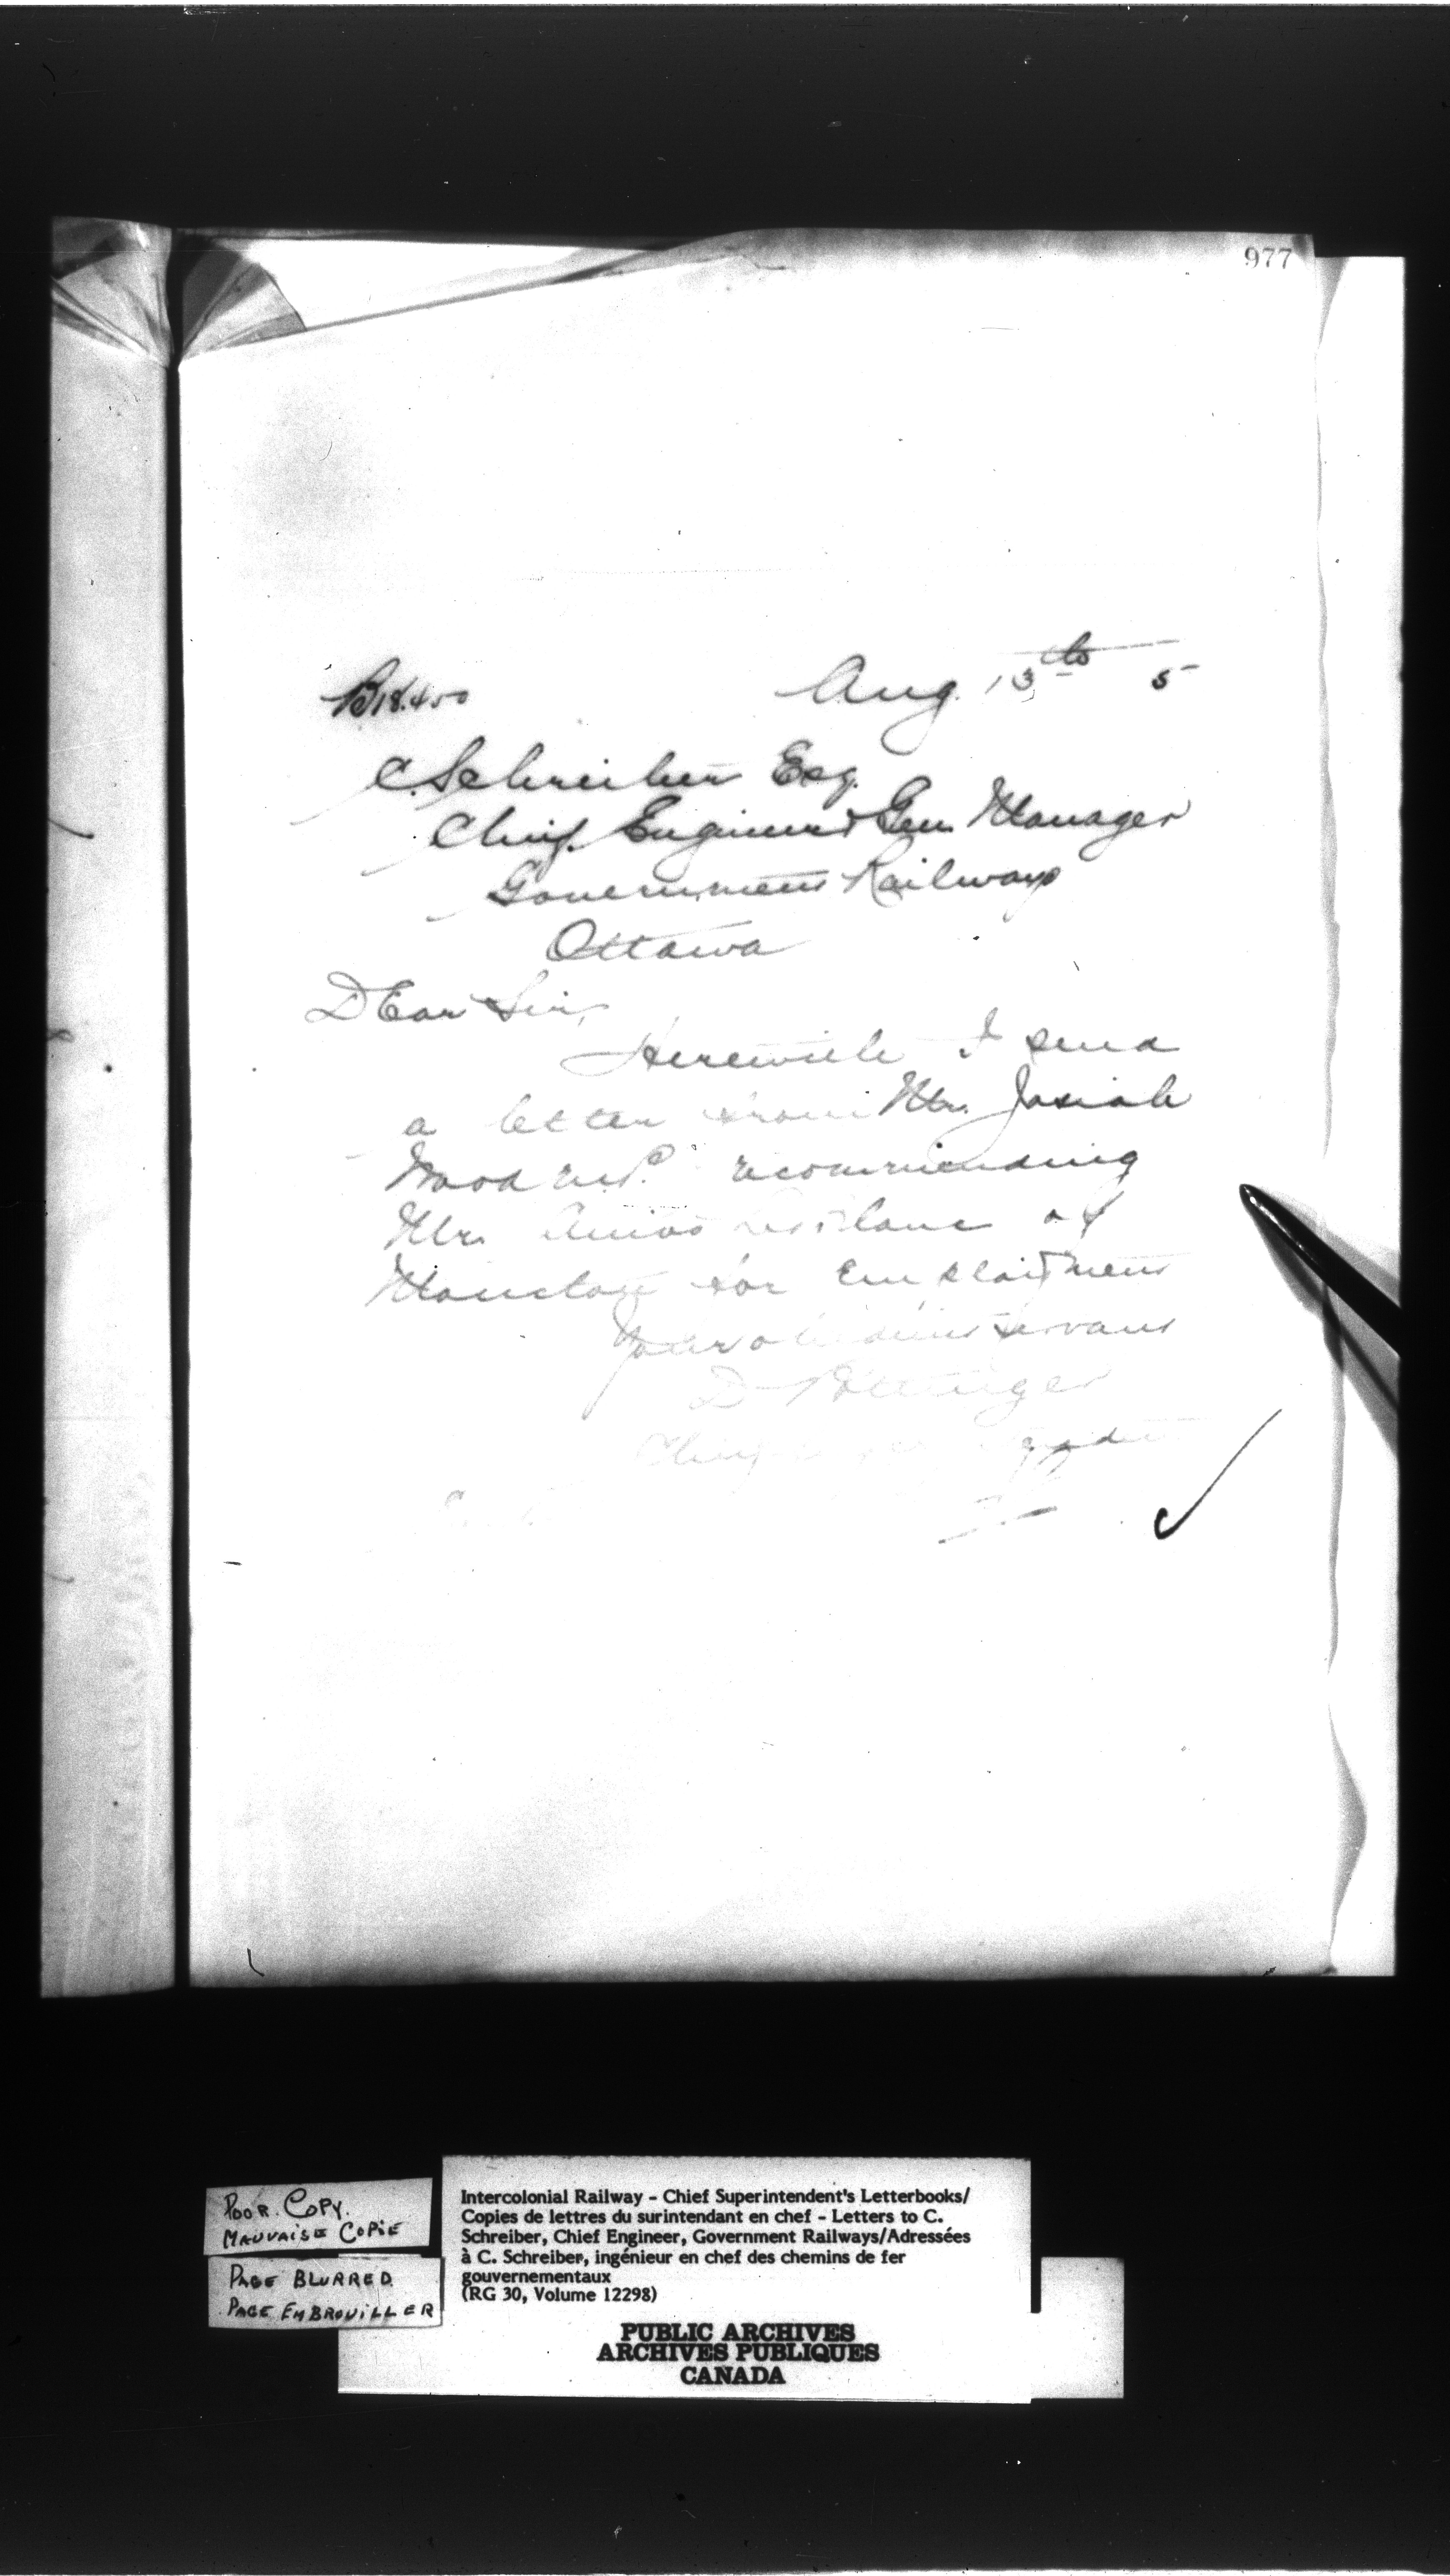 977
B18.450
Aug. 13th 5
C. Schreiber Esq.
Chief Engineer & Gen. Manager
Government Railways
Ottawa
Dear Sir,
Herewith I send
a letter from Mr. Josiah
Wood M.P. recommending
Mr. Amos of
Moncton for Employment
Your obedient servant
D Pottinger
Chief
POOR COPY.
MAUVAISE COPIE
PAGE BLURRED
PAGE EMBROUILLER
Intercolonial Railway - Chief Superintendent's Letterbooks/
Copies de lettres du surintendant en chef - Letters to C.
Schreiber, Chief Engineer, Government Railways/Adressées
à C. Schreiber, ingénieur en chef des chemins de fer
gouvernementaux
(RG 30, Volume 12298)
PUBLIC ARCHIVES
ARCHIVES PUBLIQUES
CANADA